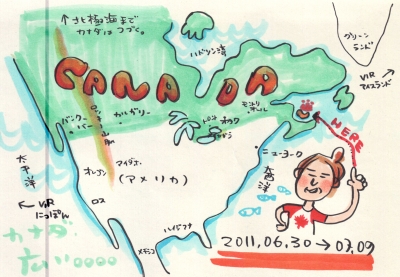 ↑北極海まで
カナダはつづく。
ハドソン湾
グリーン
ランド
VIA
アイスランド
CANADA
ロッキー山脈
カルガリー
バンクー
バー
モントリオール
トロント
オタワ
HERE
ニューヨーク
太平洋
オレゴン
アイダホ
(アメリカ)
大西洋
ロス
← VIA
にっぽん
ハバナ
メキシコ
カナダ
広い
2011.06.30 → 07.09